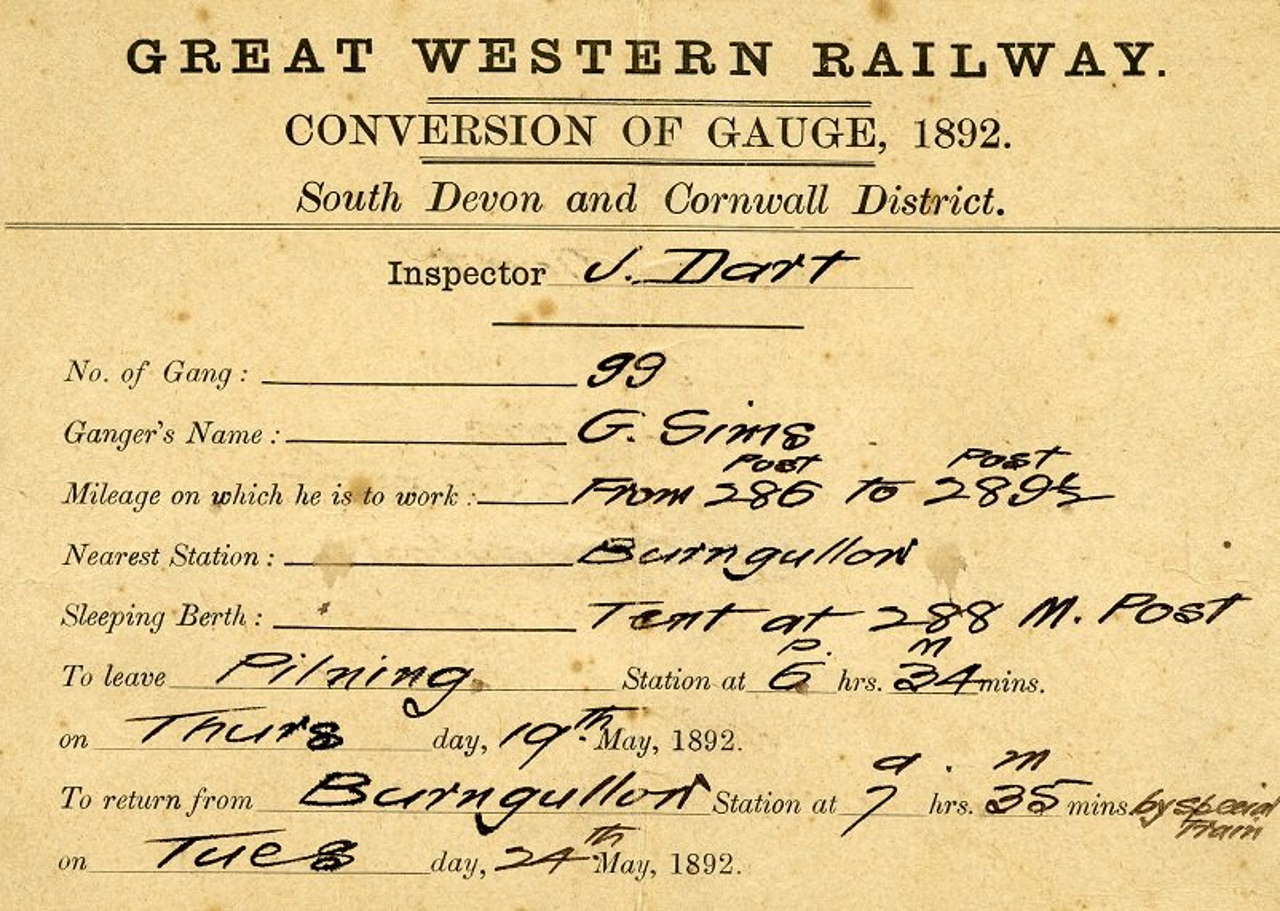 GREAT WESTERN RAILWAY.
CONVERSION OF GAUGE, 1892.
South Devon and Cornwall District.
Inspector J. Dart
No. of Gang: 99
Ganger's Name: G. Sims
Post Post
Mileage on which he is to work: From 286 to 289½
Nearest Station: Burngullow
Sleeping Berth: Tent at 288 M. Post
P. M
To leave Pilning Station at 6 hrs. 34 mins.
on Thurs day, 19th May, 1892.
a. m
To return from Burngullow Station at 7 hrs. 35 mins. by special Train
on Tues day, 24th May, 1892.